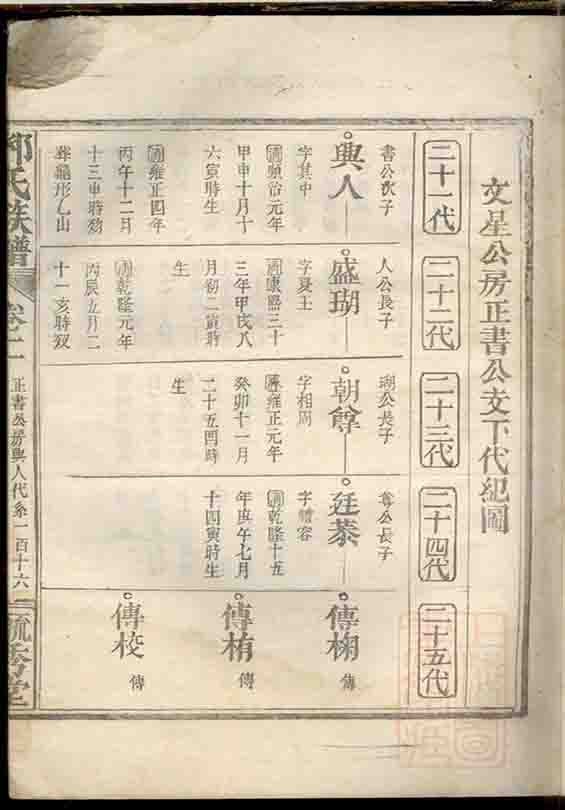 文星公房正書公支下代紀圖
二十一代
二十二代
二十三代
二十四代
二十五代
書公次子
興人
字其中
清順治元年
甲申十月十
六寅時生
清雍正四年
丙午十二月
十三申時歿
葬龜形乙山
人公長子
盛瑚
字夏士
清康熙三十
三年甲戌八
月初二寅時
生
清乾隆元年
丙辰五月二
十一亥時歿
瑚公長子
朝尊
字相周
清雍正元年
癸卯十一月
二十五酉時
生
尊公長子
廷泰
字體容
清乾隆十五
年庚午七月
十四寅時生
傳椈
傳
傳栯
傳
傳校
傳
氏族譜
卷二
正書公房興人代系一百十六
毓秀堂